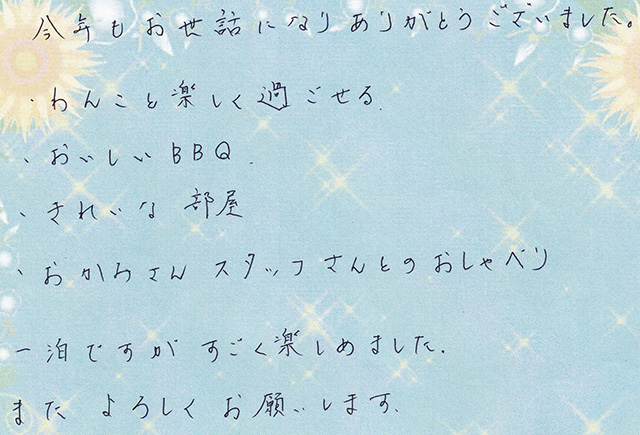 今年もお世話になりありがとうございました。
・わんこと楽しく過ごせる.
・おいしいBBQ.
・きれいな部屋
・おかみさん スタッフさんとのおしゃべり
一泊ですが すごく楽しめました.
また よろしくお願いします.